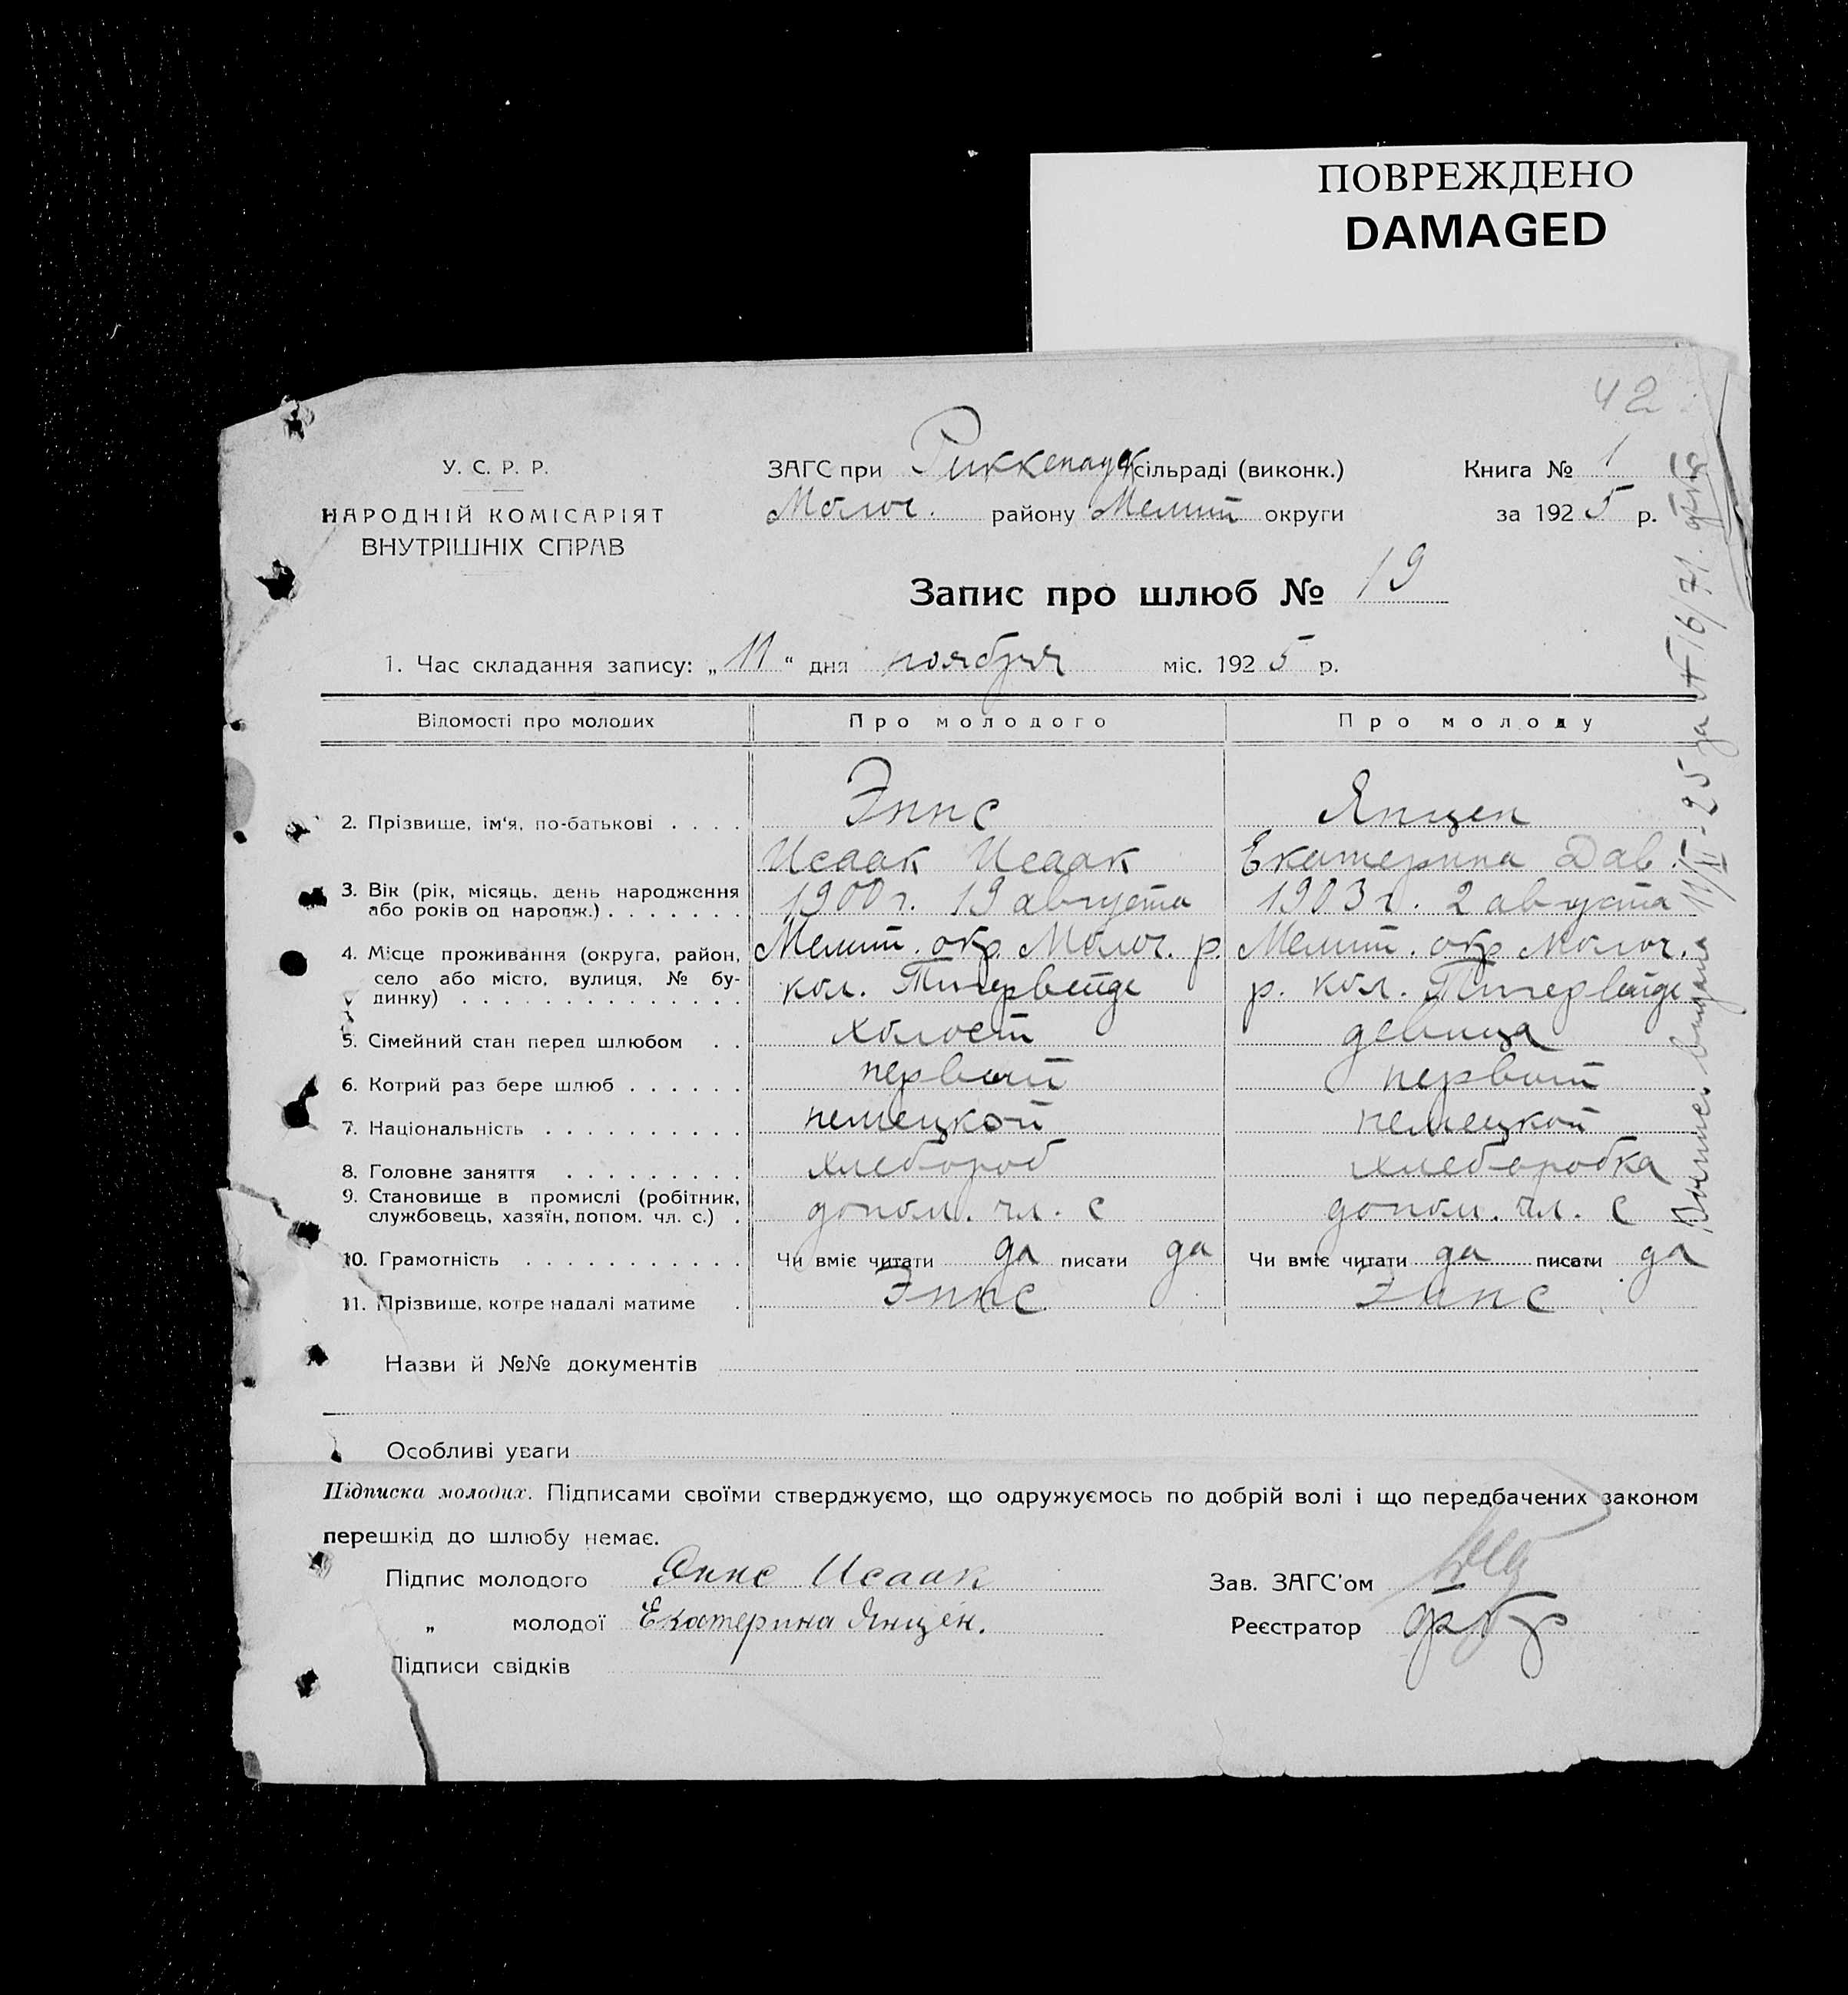 ПОВРЕЖДЕНО
DAMAGED
42
У. С. Р. Р.
НАРОДНІЙ КОМІСАРІЯТ
ВНУТРІШНІХ СПРАВ
ЗАГС при Риккенауск сільраді (виконк.)
Молоч. району Мелит округи
Книга № 1
за 1925 р.
Запис про шлюб № 19
1. Час складання запису: „11“ дня ноября міс. 1925 р.
Відомості про молодих Про молодого Про молоду
2. Прізвище, ім'я, по-батькові . . . . Эннс Янцен
Исаак Исаак Екатерина Дав.
3. Вік (рік, місяць, день народження або років од народж.) . . . . . . . 1900 г. 19 августа 1903 г. 2 августа
4. Місце проживання (округа, район, село або місто, вулиця, № будинку) . . . . . . . . . . . . . . Мелит. окр. Молоч. р. кол. Тигервейде Мелит. окр Молоч. р. кол. Тигервейде
5. Сімейний стан перед шлюбом . . холост девица
6. Котрий раз бере шлюб . . . . . . первый первый
7. Національність . . . . . . . . . . немецкой немецкой
8. Головне заняття . . . . . . . . . хлебороб хлеборобка
9. Становище в промислі (робітник, службовець, хазяїн, допом. чл. с.) . допом. чл. с допом. чл. с
10. Грамотність . . . . . . . . . . . Чи вміє читати да писати да Чи вміє читати да писати да
11. Прізвище, котре надалі матиме . Эннс Эннс
Назви й №№ документів
Особливі уваги
Підписка молодих. Підписами своїми стверджуємо, що одружуємось по добрій волі і що передбачених законом
перешкід до шлюбу немає.
Підпис молодого Эннс Исаак
„ молодої Екатерина Янцен.
Підписи свідків
Зав. ЗАГС'ом
Реєстратор
выдана 11/XI-25 за № 16/71.